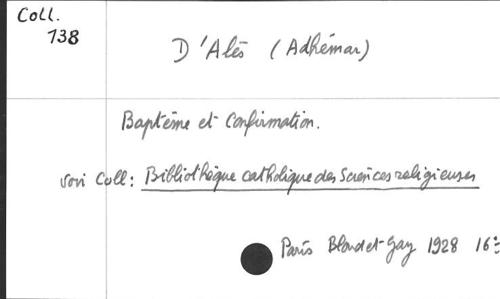 Coll.
138
D'Alès (Adhémar)
Baptême et Confirmation.
voir Coll: Bibliothèque catholique des Sciences religieuses
Paris Bloud et Gay 1928 16º